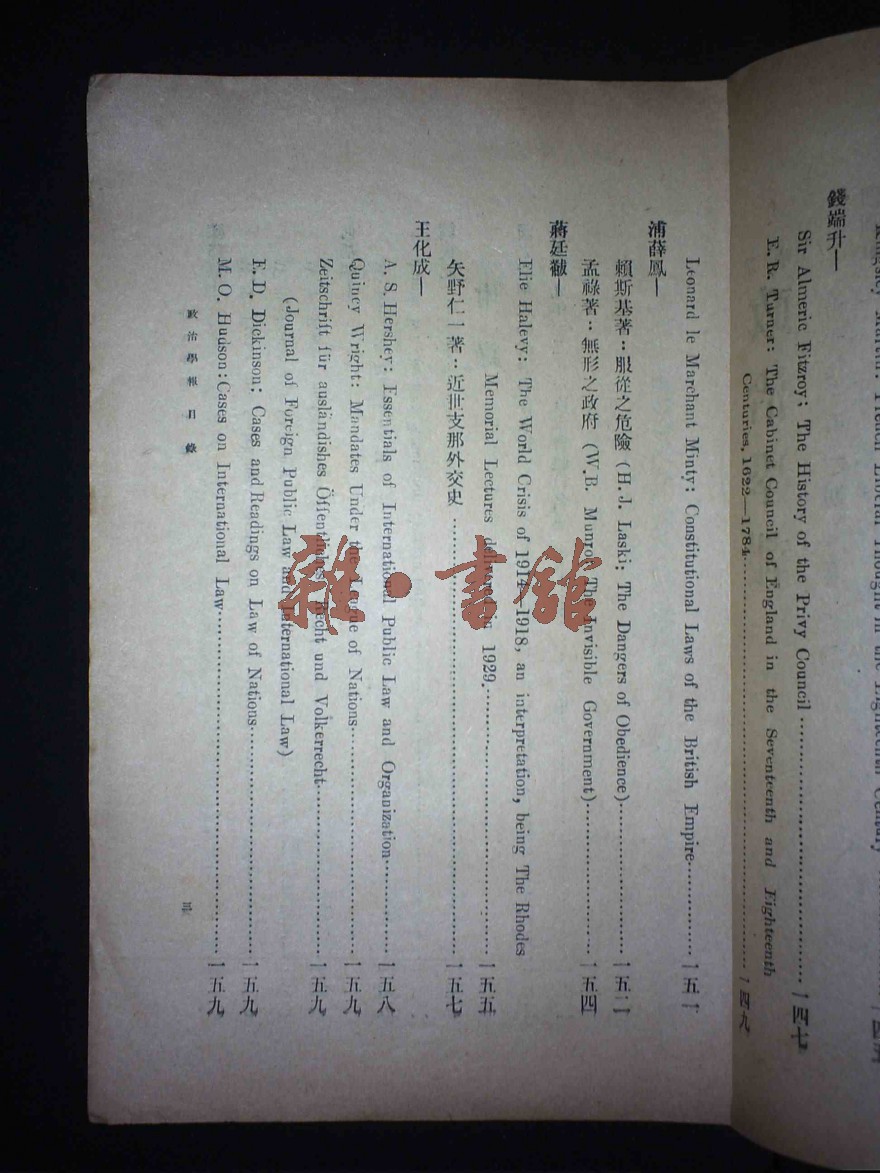 Kingsley Martin: French Liberal Thought in the Eighteenth Century
錢端升—
Sir Almeric Fitzroy; The History of the Privy Council 一四七
E. R. Turner: The Cabinet Council of England in the Seventeenth and Eighteenth
Centuries, 1622—1784 一四九
Leonard le Marchant Minty: Constitutional Laws of the British Empire 一五一
浦薛鳳—
賴斯基著：服從之危險 (H. J. Laski; The Dangers of Obedience) 一五二
孟祿著：無形之政府 (W. B. Munro: The Invisible Government) 一五四
蔣廷黻—
Elie Halevy: The World Crisis of 1914—1918, an interpretation, being The Rhodes
Memorial Lectures delivered in 1929. 一五五
矢野仁一著：近世支那外交史 一五七
王化成—
A. S. Hershey: Essentials of International Public Law and Organization 一五八
Quincy Wright: Mandates Under the League of Nations 一五九
Zeitschrift für ausländishes Öffentliches Recht und Volkerrecht 一五九
(Journal of Foreign Public Law and International Law)
E. D. Dickinson: Cases and Readings on Law of Nations 一五九
M. O. Hudson: Cases on International Law 一五九
政治學報目錄
三
雜·書館